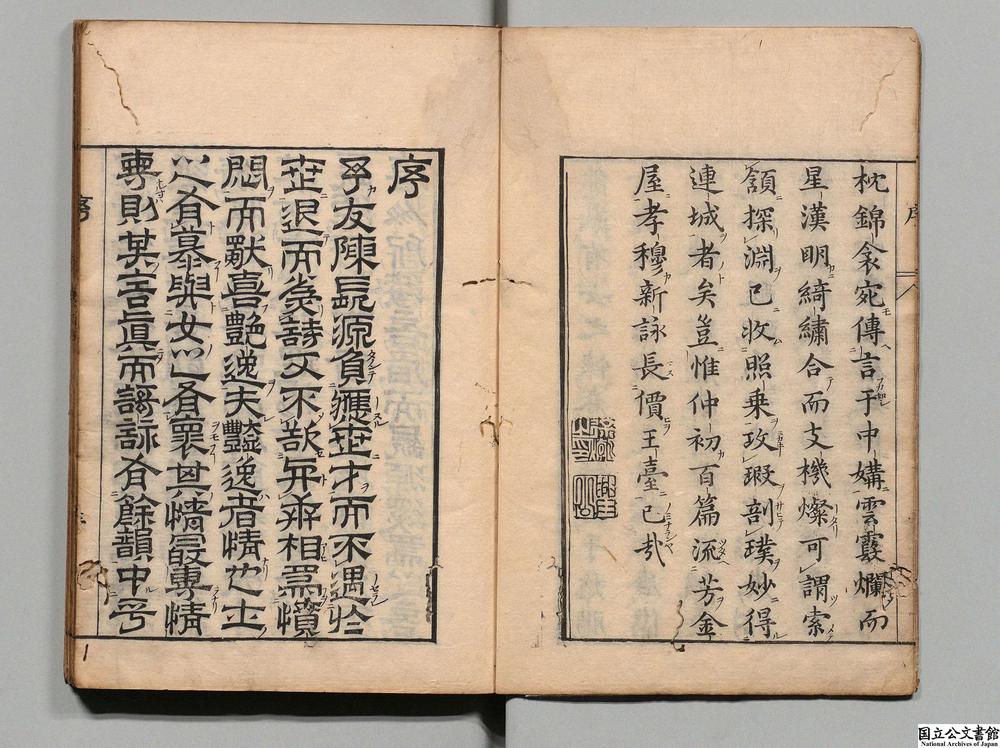 枕錦衾宛傳言于中媾雲霞爛而
星漢明綺繡合而支機燦可謂索
頷探淵已收照乗攻瑕剖璞妙得
連城者矣豈惟仲初百篇流芳金
屋孝穆新詠長價玉臺已哉
序
予友陳長源負應世才而不遇於
世退而爲詩又不欲相爲憤
悶而喜艷逸夫艷逸者情也士
之有慕與女之有褱其情最專情
專則其言眞而謌詠有餘韻中乎
序
国立公文書館
National Archives of Japan